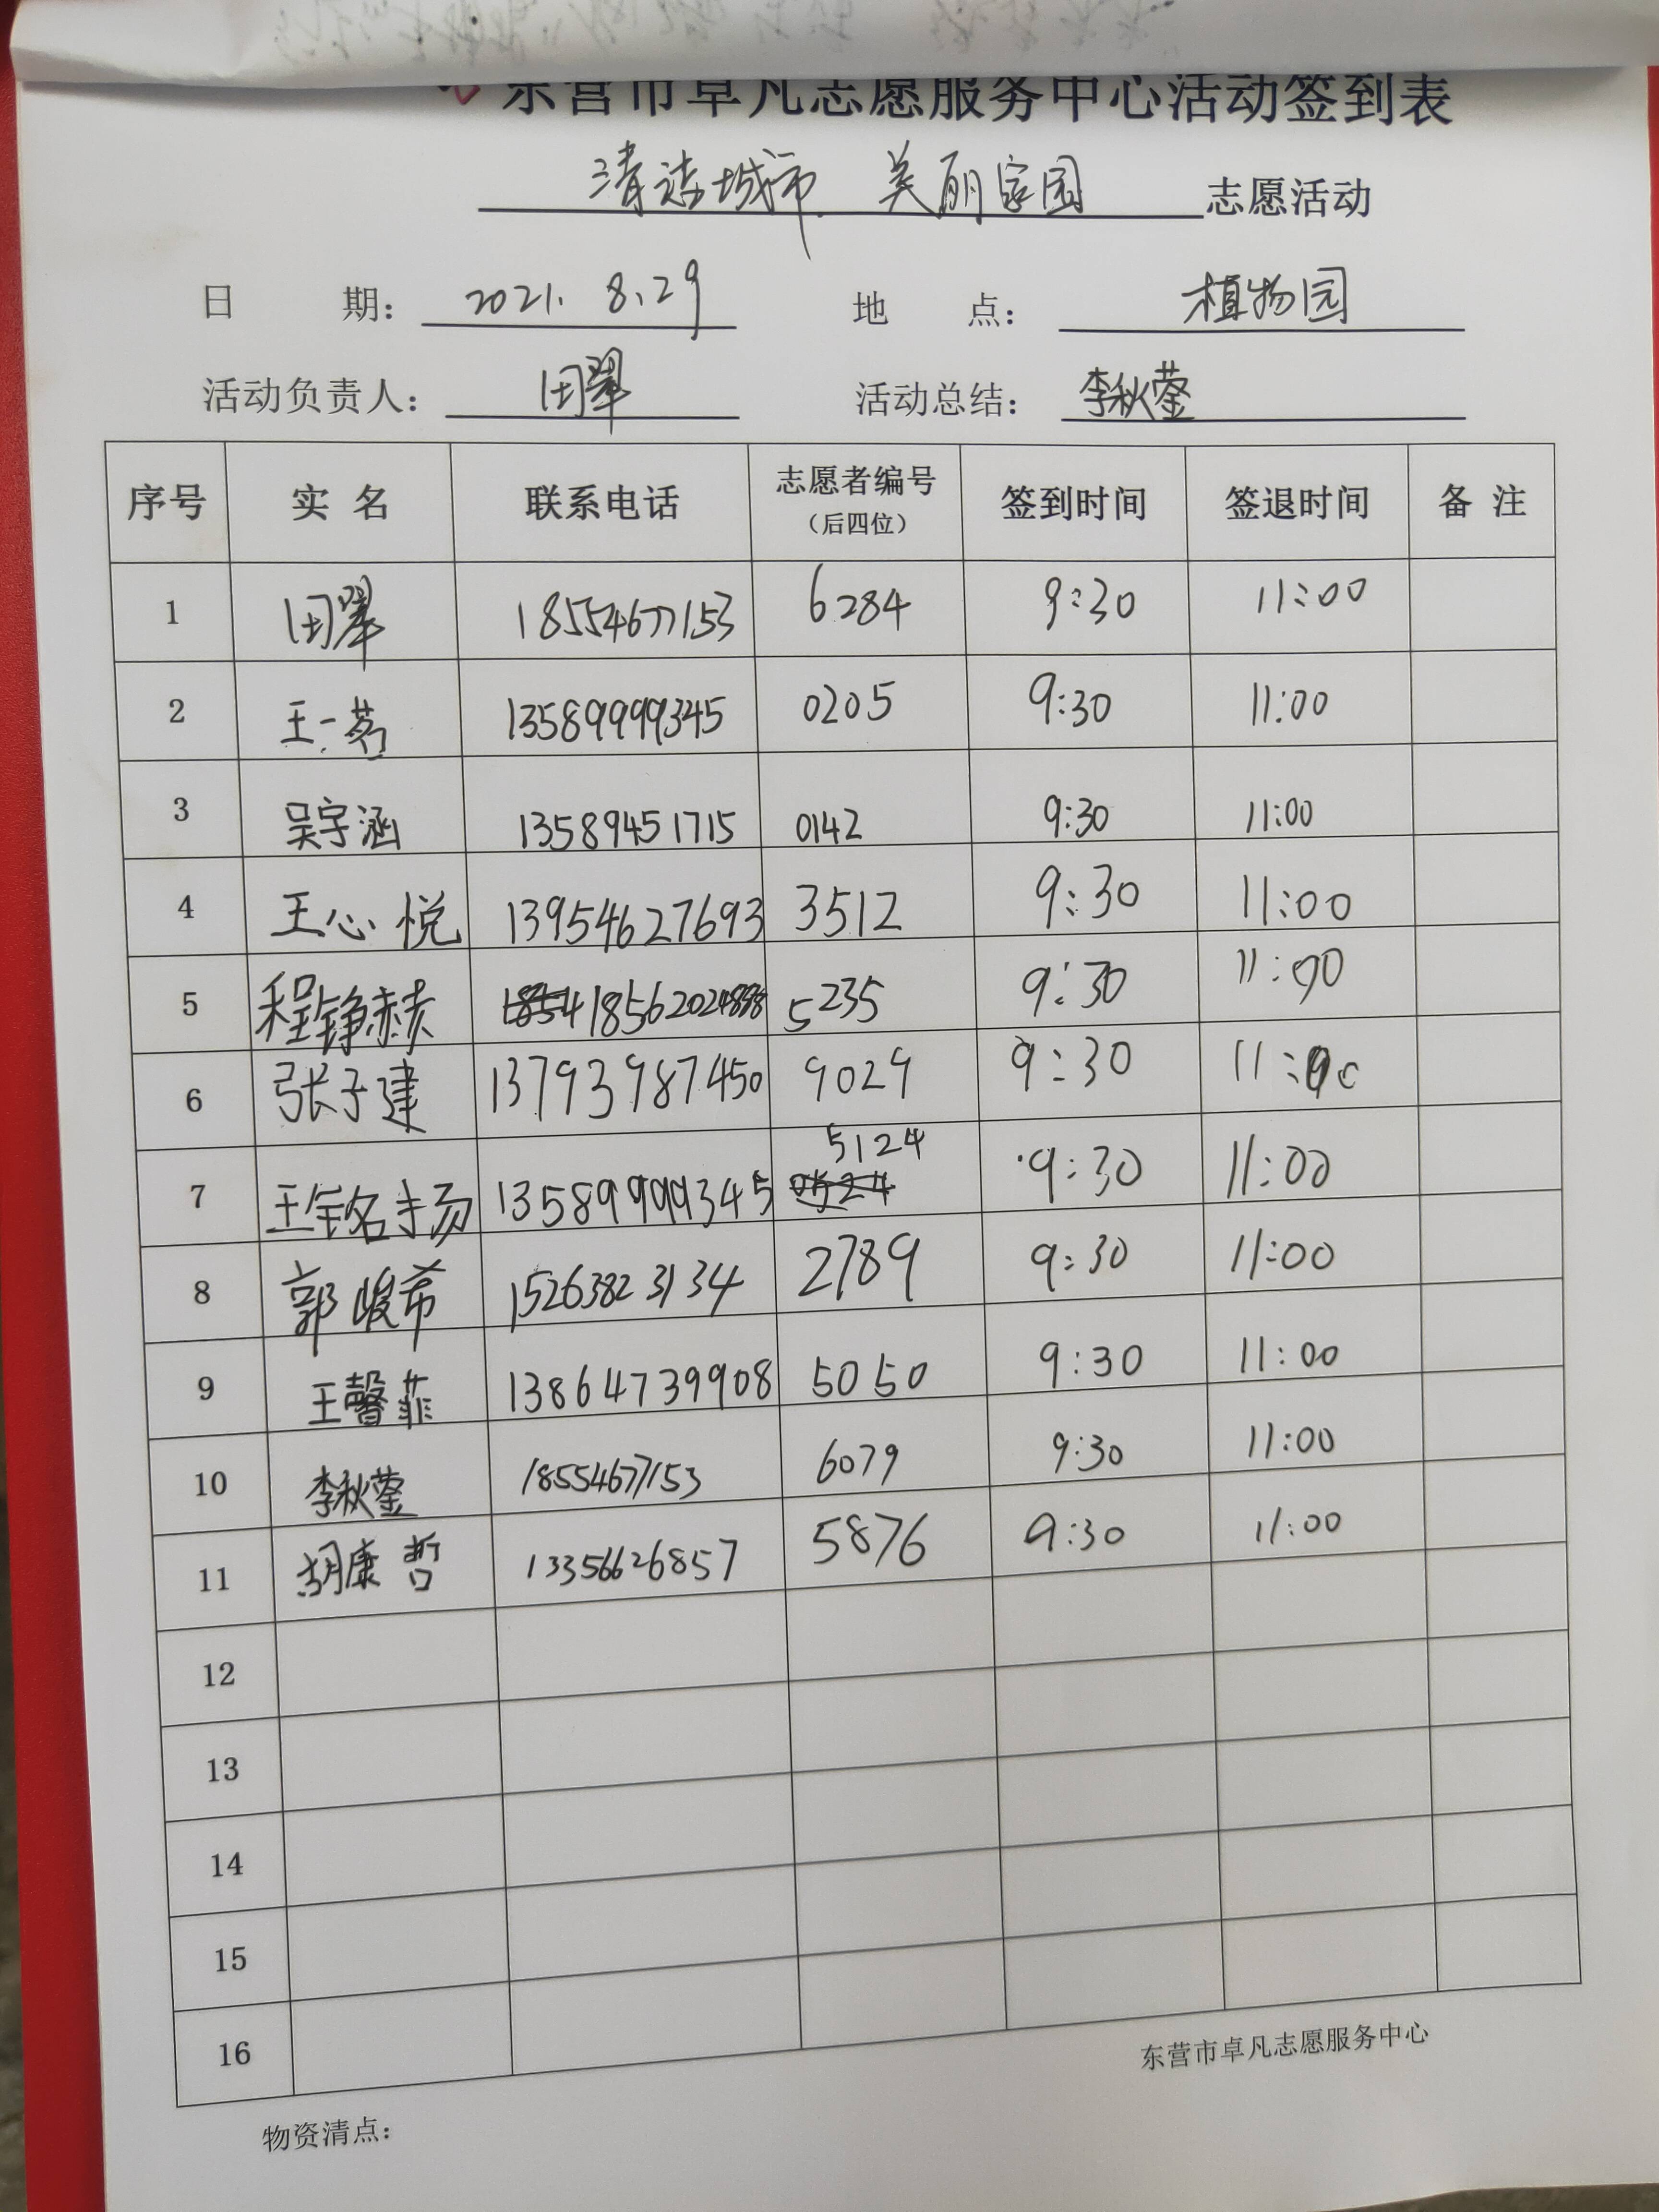 东营市卓凡志愿服务中心活动签到表
清洁城市 美丽家园 志愿活动
日 期： 2021. 8.29 地 点： 植物园
活动负责人： 田翠 活动总结： 李秋蓥
序号 实 名 联系电话 志愿者编号（后四位） 签到时间 签退时间 备 注
1 田翠 18554677153 6284 9:30 11:00
2 王一茗 13589999345 0205 9:30 11:00
3 吴宇涵 13589451715 0142 9:30 11:00
4 王心悦 13954627693 3512 9:30 11:00
5 程铮赫 5235 9:30 11:00
6 张子建 13793987450 9029 9:30 11:00
7 王铭扬 13589999345 5124 9:30 11:00
8 郭峻希 15263823134 2789 9:30 11:00
9 王馨菲 13864739908 5050 9:30 11:00
10 李秋蓥 18554677153 6079 9:30 11:00
11 胡康哲 13356626857 5876 9:30 11:00
12
13
14
15
16
东营市卓凡志愿服务中心
物资清点：